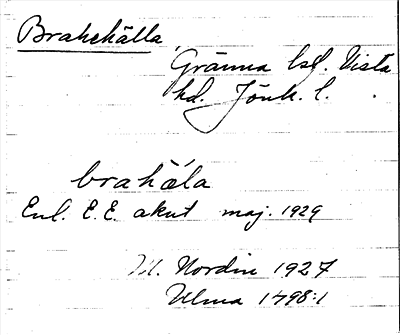 Brahehälla,
Gränna lsf. Vista
hd. Jönk. l.
brahä́la
Enl. E.E. akut maj. 1929
M. Nordin 1927
Ulma 1498:1